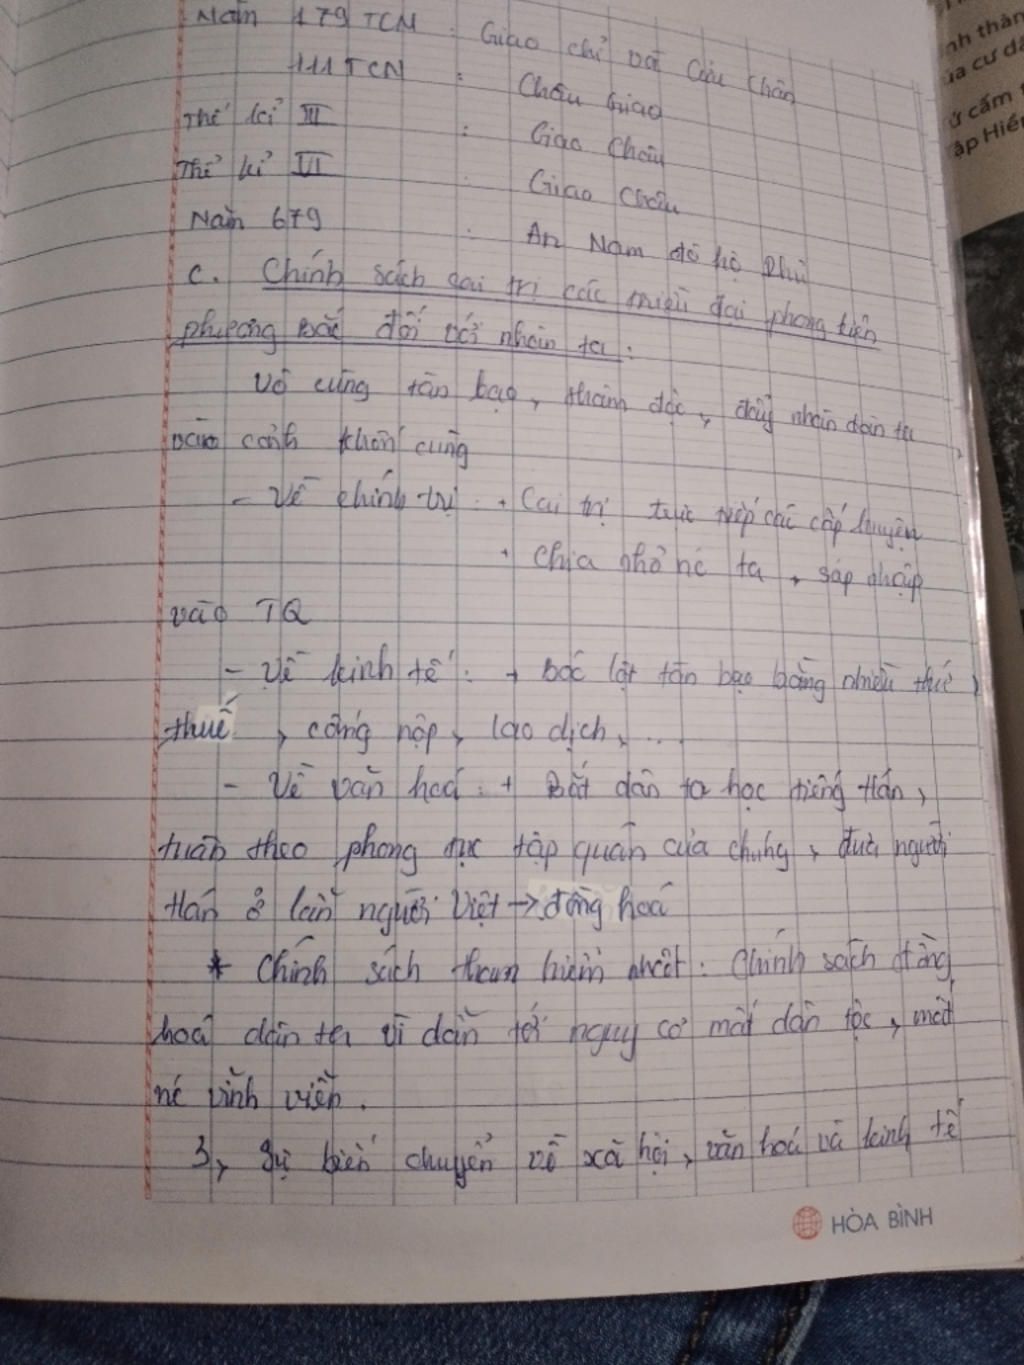 Năm 179 TCN : Giao chỉ và Cửu Chân
111 TCN : Châu Giao
Thế kỉ III : Giao Châu
Thế kỉ VI : Giao Châu
Năm 679 : An Nam đô hộ phủ
c. Chính sách cai trị các triều đại phong kiến
phương Bắc đối với nhân ta :
Vô cùng tàn bạo, thâm độc, đẩy nhân dân ta
vào cảnh khốn cùng
- Về chính trị : + Cai trị trực tiếp các cấp huyện
+ Chia nhỏ nc ta, sáp nhập
vào TQ
- Về kinh tế : + Bóc lột tàn bạo bằng nhiều thứ
thuế, cống nộp, lao dịch, ...
- Về văn hoá : + Bắt dân ta học tiếng Hán,
tuân theo phong tục tập quán của chúng, đưa người
Hán ở lẫn người Việt → đồng hoá
* Chính sách tham hiểm nhất : Chính sách đồng
hoá dân ta vì dẫn tới nguy cơ mất dân tộc, mất
nc vĩnh viễn.
3, Sự biến chuyển về xã hội, văn hoá và kinh tế
HÒA BÌNH
nh thàn
ủa cư dâ
ử cấm t
ập Hiến